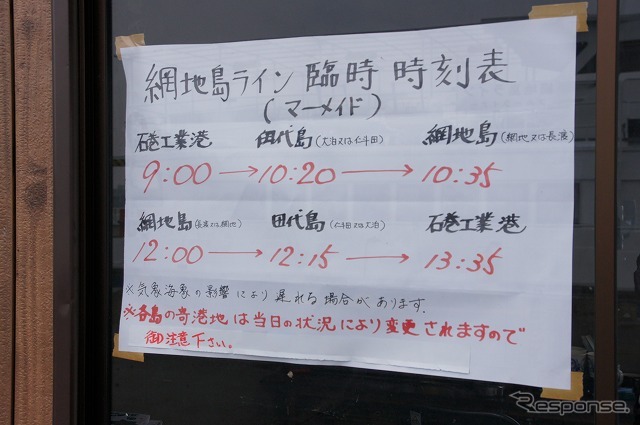 網地島ライン 臨時 時刻表
(マーメイド)
石巻工業港 田代島(大泊又は仁斗田) 網地島(網地又は長渡)
9:00→10:20→10:35
網地島(長渡又は網地) 田代島(仁斗田又は大泊) 石巻工業港
12:00→12:15→13:35
※気象海象の影響により遅れる場合があります.
※各島の寄港地は当日の状況により変更されますので
御注意下さい。
Response.